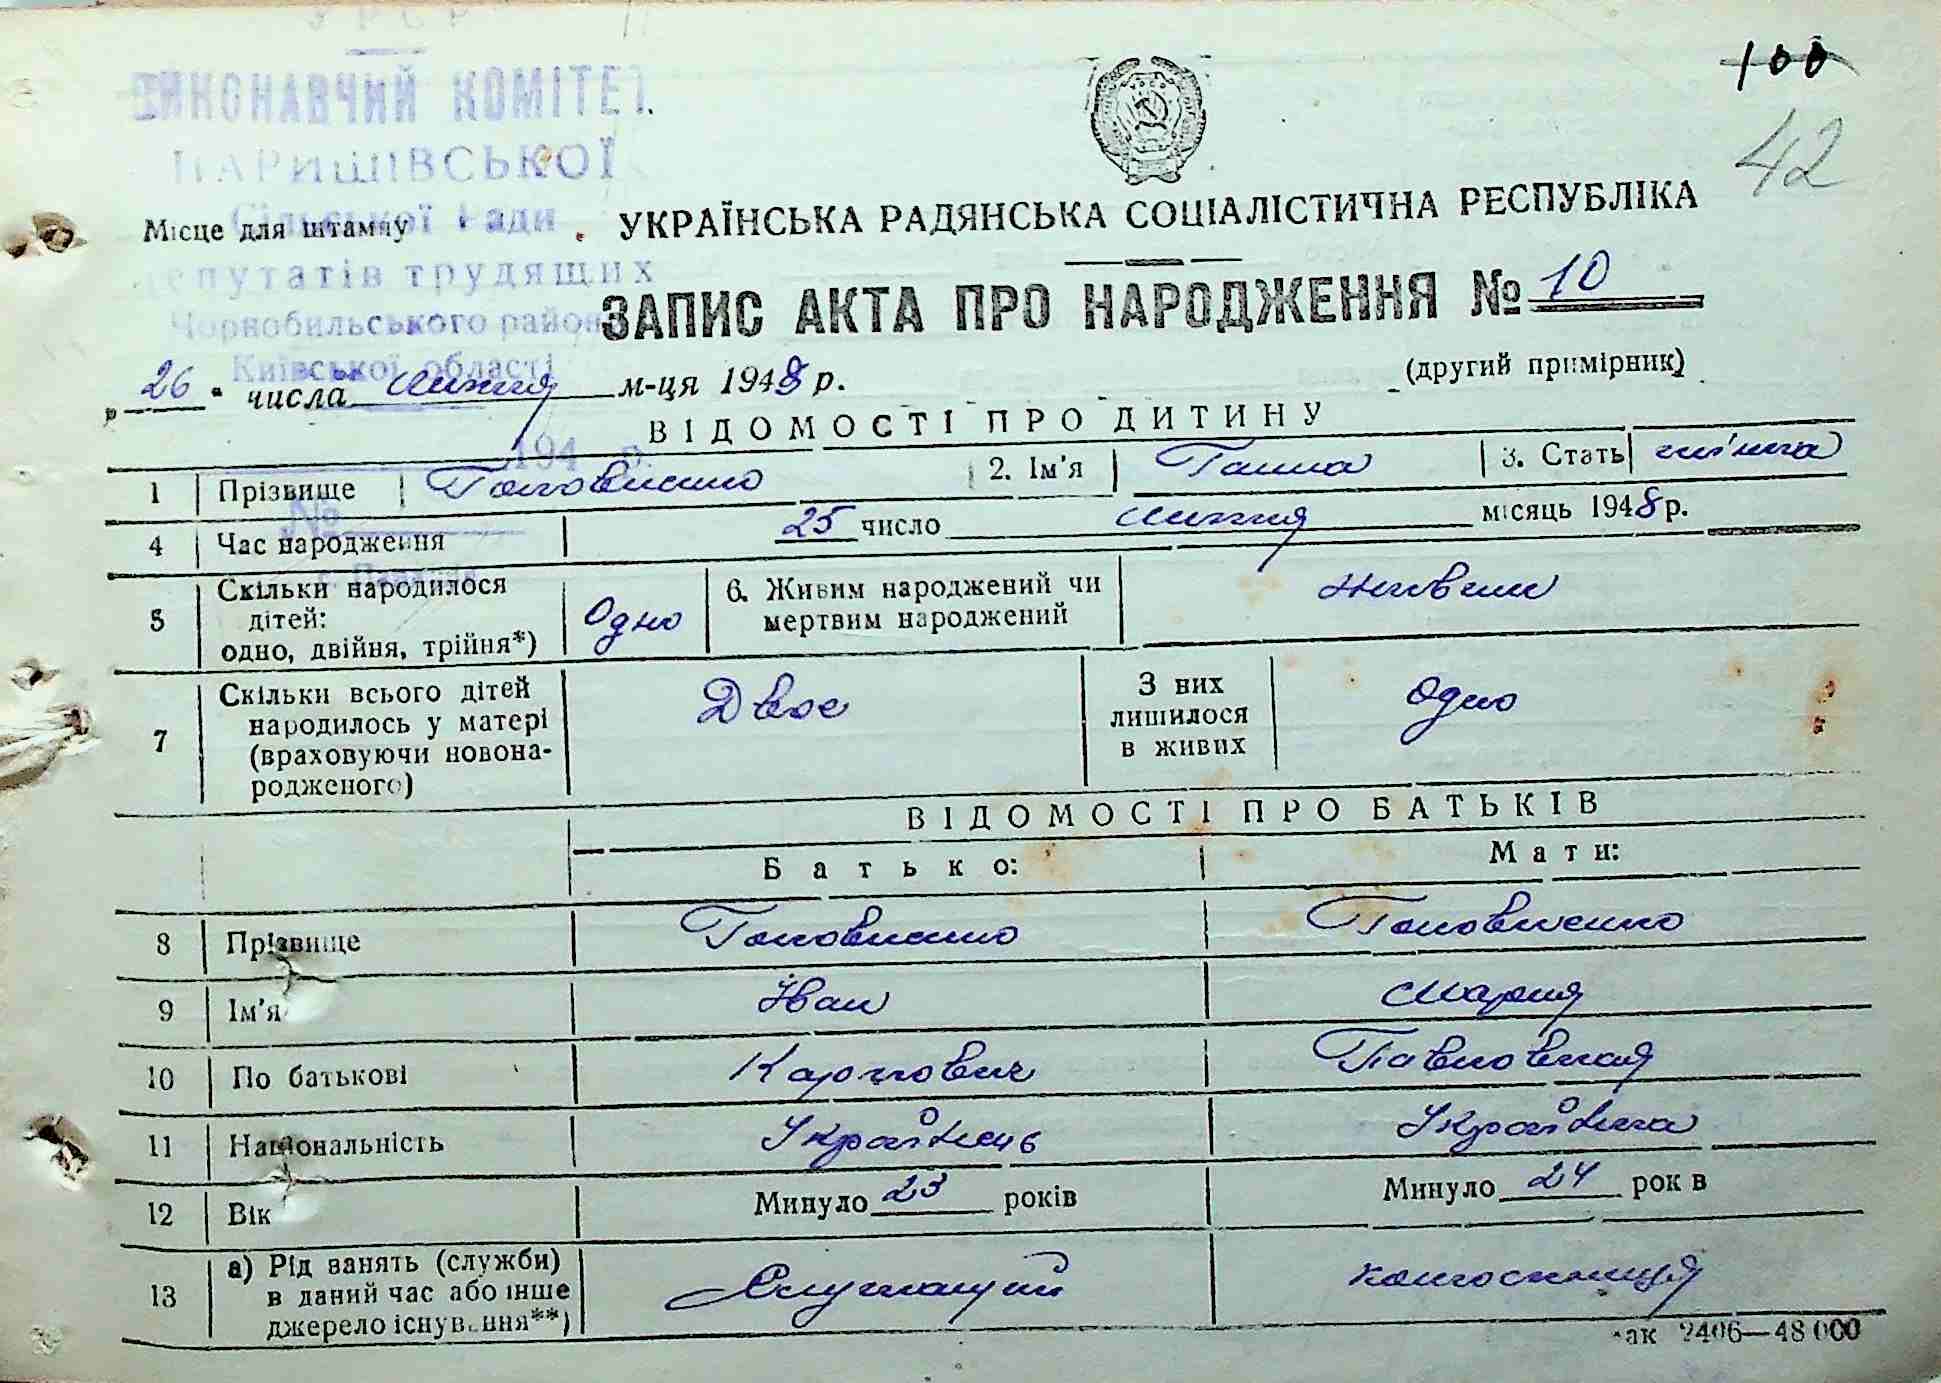 100
42
ВИКОНАВЧИЙ КОМІТЕТ
ПАРИШІВСЬКОЇ
Сільської Ради
депутатів трудящих
Чорнобильського району
Київської області
194 р.
№
Місце для штампу
УКРАЇНСЬКА РАДЯНСЬКА СОЦІАЛІСТИЧНА РЕСПУБЛІКА
ЗАПИС АКТА ПРО НАРОДЖЕННЯ № 10
(другий примірник)
26 " числа липня м-ця 1948 р.
ВІДОМОСТІ ПРО ДИТИНУ
1 Прізвище Головненко 2. Ім'я Ганна 3. Стать жіноча
4 Час народження 25 число липня місяць 1948 р.
5 Скільки народилося
дітей:
одно, двійня, трійня*)
Одно
6. Живим народжений чи
мертвим народжений
живим
7 Скільки всього дітей
народилось у матері
(враховуючи новона-
родженого)
Двоє
З них
лишилося
в живих
Одно
ВІДОМОСТІ ПРО БАТЬКІВ
Батько: Мати:
8 Прізвище Головненко Головненко
9 Ім'я Іван Мария
10 По батькові Карпович Павловная
11 Національність Українець Українка
12 Вік Минуло 23 років Минуло 24 рок в
13 а) Рід занять (служби)
в даний час або інше
джерело існування**)
Служащий колгоспниця
зак 2406—48 000